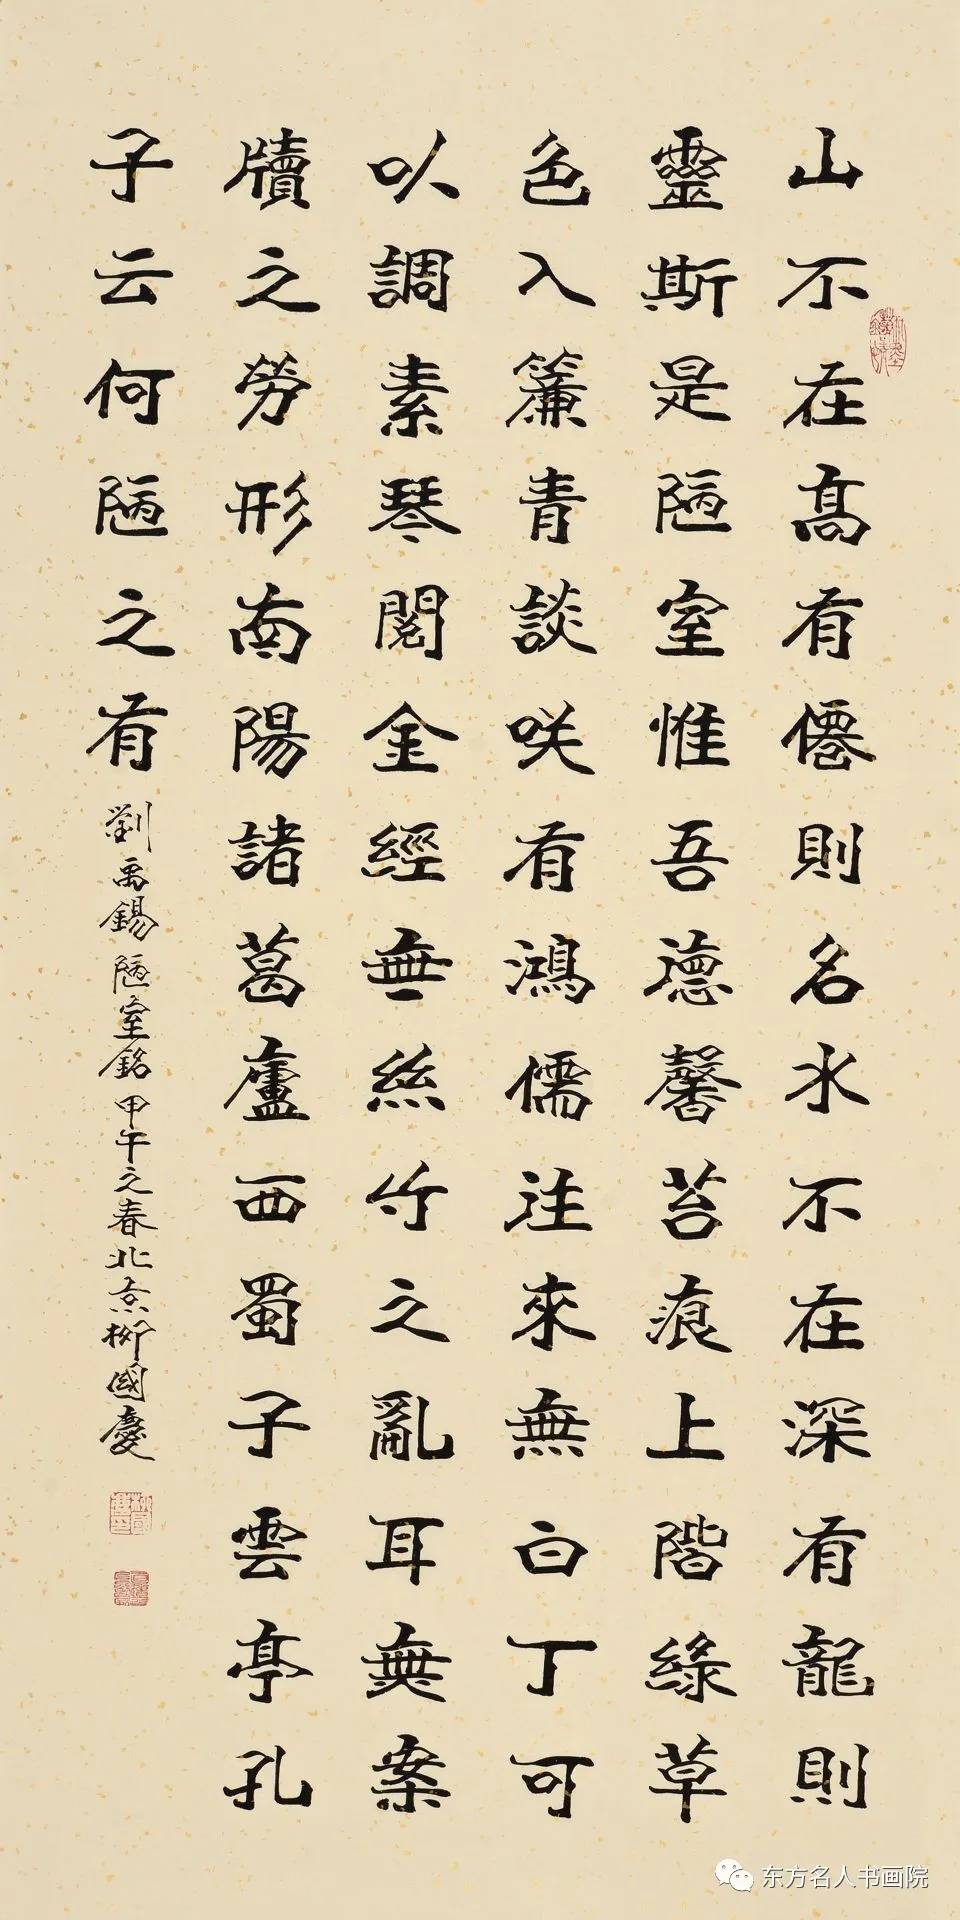 山不在髙有僊則名水不在深有龍則
靈斯是陋室惟吾德馨苔痕上階綠草
色入簾青談咲有鴻儒往來無白丁可
以調素琴閱金經無絲竹之亂耳無案
牘之勞形南陽諸葛廬西蜀子雲亭孔
子云何陋之有
劉禹錫陋室銘甲午之春北京柳國慶
东方名人书画院